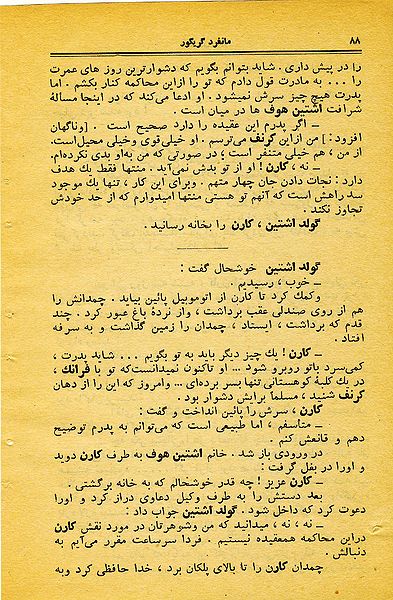 ۸۸
مانفرد گریگور
را در پیش داری . شاید بتوانم بگویم که دشوارترین روز های عمرت
را ... به مادرت قول دادم که تو را ازاین محاکمه کنار بکشم . اما
پدرت هیچ چیز سرش نمیشود . او ادعا می‌کند که در اینجا مسألهٔ
شرافت اشتین هوف ها در میان است .
ــ اگر پدرم این عقیده را دارد صحیح است . [وناگهان
افزود : ] من ازاین کرنف می‌ترسم . او خیلی قوی وخیلی محیل‌است.
از من ، هم خیلی متنفر است ؛ در صورتی که من به‌او بدی نکرده‌ام.
ــ نه ، کارن ! او از تو بدش نمی‌آید . منتها فقط یك هدف
دارد : نجات دادن جان چهار متهم . وبرای این کار ، تنها یك موجود
سد راهش است که آنهم تو هستی منتها امیدوارم که از حد خودش
تجاوز نکند .
گولد اشتین ، کارن را بخانه رسانید .
گولد اشتین خوشحال گفت :
ــ خوب ، رسیدیم .
وکمك کرد تا کارن از اتوموبیل پائین بیاید . چمدانش را
هم از روی صندلی عقب برداشت ، واز نردهٔ باغ عبور کرد . چند
قدم که برداشت ، ایستاد ، چمدان را زمین گذاشت و به سرفه
افتاد .
ــ کارن ! یك چیز دیگر باید به تو بگویم ... شاید پدرت ،
کمی‌سرد باتو روبرو شود ... او تاکنون نمیدانست‌که تو با فرانك ،
در یك کلبهٔ کوهستانی تنها بسر برده‌ای ... وامروز که این را از دهان
کرنف شنید ، مسلماً برایش دشوار بود .
کارن ، سرش را پائین انداخت و گفت :
ــ متاسفم ، اما طبیعی است که می‌توانم به پدرم توضیح
دهم و قانعش کنم .
در ورودی باز شد . خانم اشتین هوف به طرف کارن دوید
و اورا در بغل گرفت :
ــ کارن عزیز ! چه قدر خوشحالم که به خانه برگشتی .
بعد دستش را به طرف وکیل دعاوی دراز کرد و اورا
دعوت کرد که داخل شود . گولد اشتین جواب داد :
ــ نه ، نه ، میدانید که من وشوهرتان در مورد نقش کارن
دراین محاکمه همعقیده نیستیم . فردا سرساعت مقرر می‌آیم به
دنبالش .
چمدان کارن را تا بالای پلکان برد ، خدا حافظی کرد وبه